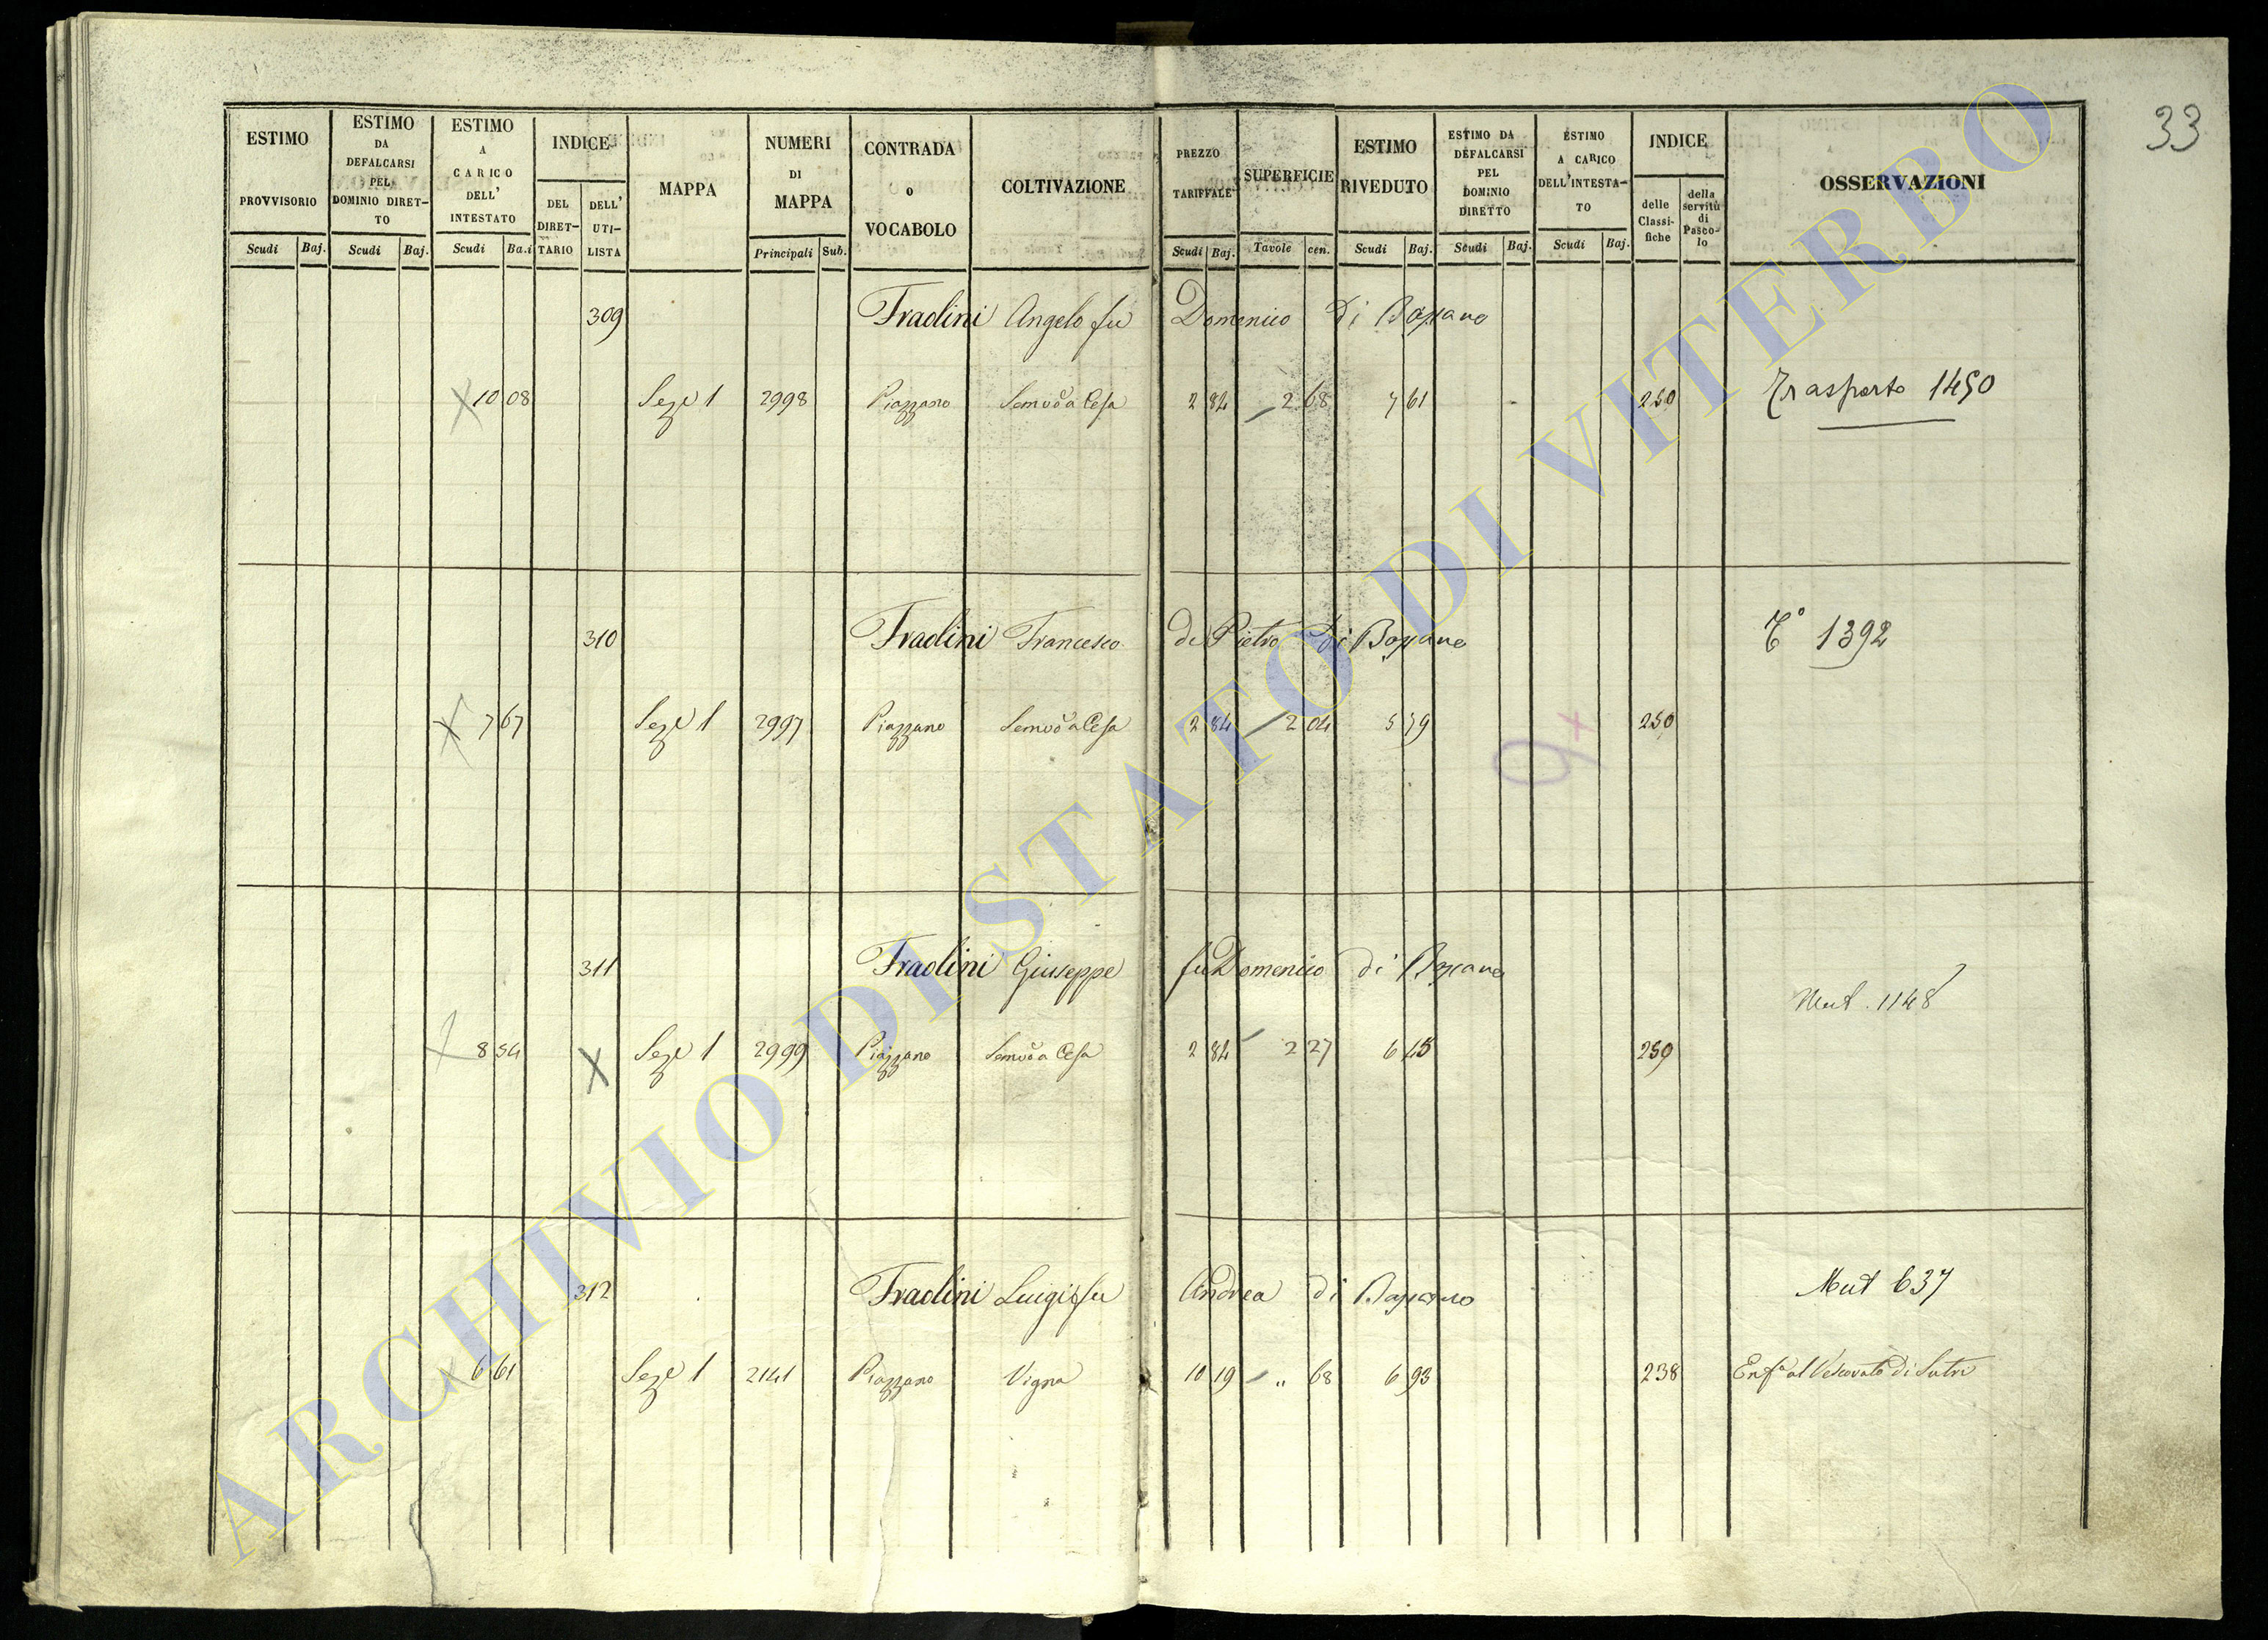 33
ESTIMO PROVVISORIO | ESTIMO DA DEFALCARSI PEL DOMINIO DIRET-TO | ESTIMO A CARICO DELL' INTESTATO | INDICE DEL DIRET-TARIO | DELL' UTI-LISTA | MAPPA | NUMERI DI MAPPA | CONTRADA o VOCABOLO | COLTIVAZIONE | PREZZO TARIFFALE | SUPERFICIE | ESTIMO RIVEDUTO | ESTIMO DA DEFALCARSI PEL DOMINIO DIRETTO | ESTIMO A CARICO DELL'INTESTA-TO | INDICE delle Classi-fiche | della servitù di Pasco-lo | OSSERVAZIONI
Scudi Baj. Scudi Baj. Scudi Ba.i Principali Sub. Scudi Baj. Tavole cen. Scudi Baj. Scudi Baj. Scudi Baj.
309 Fradini Angelo fu Domenico di Bassano
X 10 08 Seze 1 2998 Piazzano 2 84 2 68 7 61 250 Trasporto 1450
310 Fradini Francesco di Pietro di Bassano To 1392
X 7 67 Seze 1 2997 Piazzano 2 84 2 04 5 79 250
311 Fradini Giuseppe fu Domenico di Bassano
Mut. 1148
8 54 X Seze 1 2999 Piazzano 2 84 2 27 6 45 250
312 Fradini Luigi fu Andrea di Bassano Mut 637
X 6 61 Seze 1 2141 Piazzano Vigna 10 19 " 68 6 93 238 Enfa al Vescovato di Sutri
ARCHIVIO DI STATO DI VITERBO